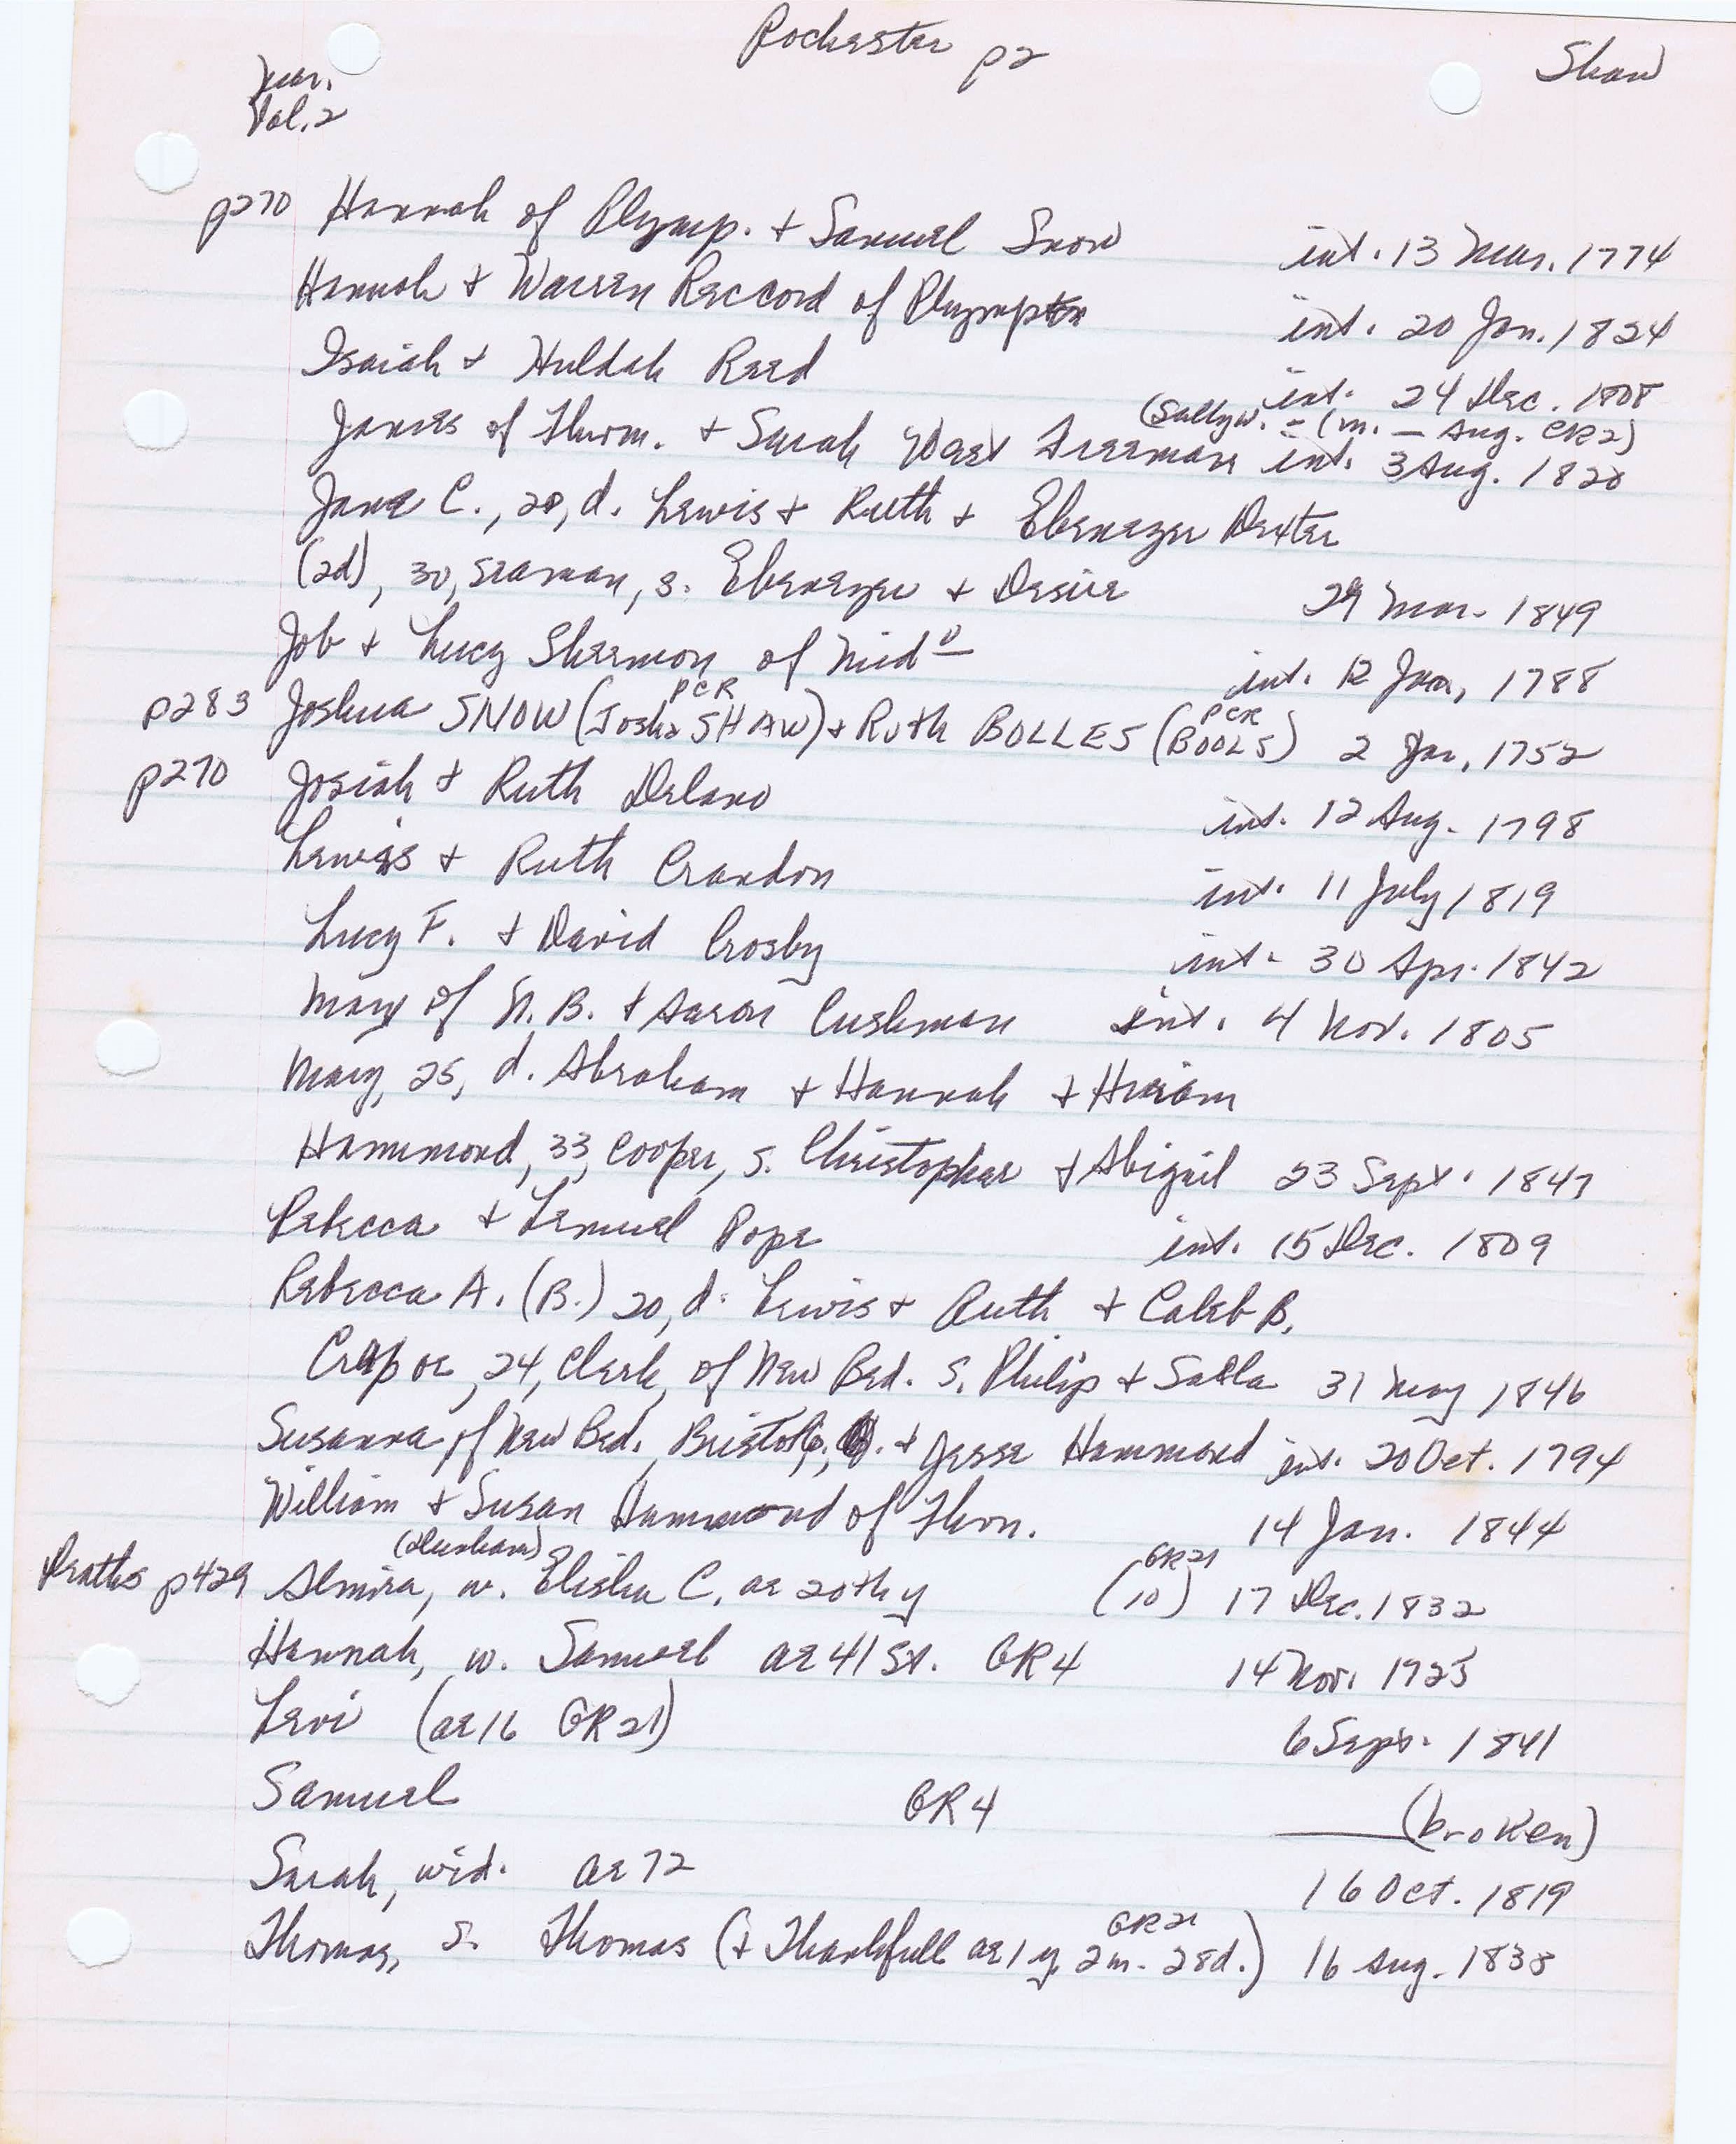 Rochester p2 Shaw
Mar.
Vol. 2
p270 Hannah of Plymp. + Samuel Snow int. 13 Mar. 1774
Hannah + Warren Reccord of Plympton int. 20 Jan. 1824
Isaiah + Huldah Reed int. 24 Dec. 1808
(Sally W. = (m. — Aug. CR2)
James of Thurm. + Sarah West Freeman int. 3 Aug. 1820
Jane C., 20, d. Lewis + Ruth + Ebenezer Dexter
(2d), 30, seaman, s. Ebenezer + Desire 29 Mar. 1849
Job + Lucy Shearman of Mid<sup>o</sup> int. 12 Jan, 1788
PCR PCR
p283 Joshua SNOW (Josha SHAW) + Ruth BOLLES (BOOLS) 2 Jan, 1752
p270 Josiah + Ruth Delano int. 12 Aug. 1798
Lewis + Ruth Crandon int. 11 July 1819
Lucy F. + David Crosby int. 30 Apr. 1842
Mary of N. B. + Aaron Cushman int. 4 Nov. 1805
Mary, 25, d. Abraham + Hannah + Hiram
Hammond, 33, cooper, s. Christopher + Abigail 23 Sept. 1847
Rebecca + Lemuel Pope int. 15 Dec. 1809
Rebecca A. (B.) 20, d. Lewis + Ruth + Caleb B.
Crapoe, 24, Clerk, of New Bed. s. Philip + Salla 31 May 1846
Susanna of New Bed., Bristol + Jesse Hammond int. 20 Oct. 1794
William + Susan Hammond of Thon. 14 Jan. 1844
(Dunham) GR21
Deaths p429 Almira, w. Elisha C. ae 20th y (10) 17 Dec. 1832
Hannah, w. Samuel ae 41st. GR4 14 Nov. 1725
Levi (ae 16 GR21) 6 Sept. 1841
Samuel GR4 ——(broken)
Sarah, wid. ae 72 16 Oct. 1819
GR21
Thomas, s. Thomas (+ Thankfull ae 1 y. 2m. 28d.) 16 Aug. 1838